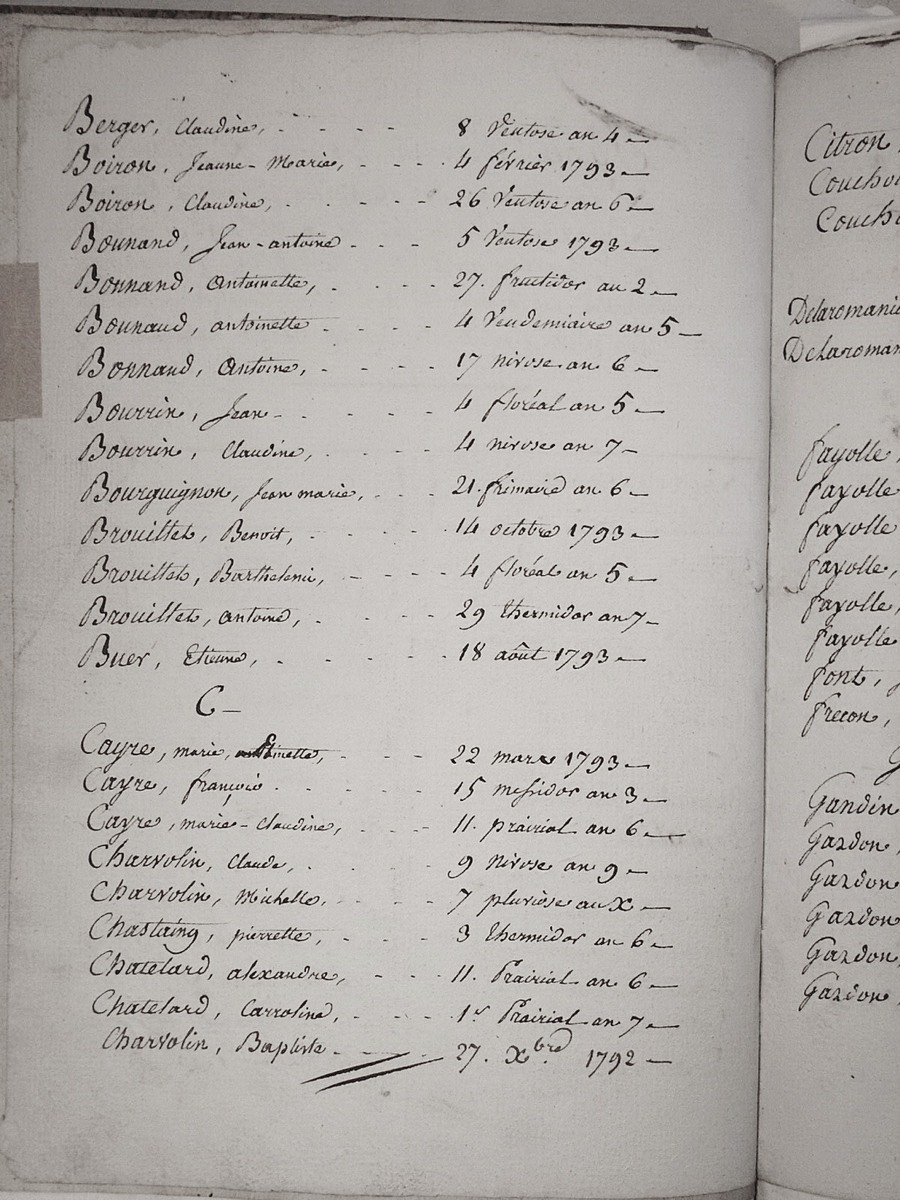 Berger, Claudine, - - - - 8 Ventose an 4 —
Boiron, Jeanne-Marie, - - - 4 février 1793 —
Boiron, Claudine, - - - - 26 Ventose an 6 —
Bounand, Jean-antoine - - - 5 Ventose 1793 —
Bonnand, Antoinette, - - - 27. fructidor an 2 —
Bounaud, antoinette - - - - 4 Vendemiaire an 5 —
Bonnaud, Antoine, - - - - 17 nivose an 6 —
Bourrin, Jean - - - - - 4 floréal an 5 —
Bourrin, Claudine, - - - - 4 nivose an 7 -
Bourguignon, Jean marie, - - - 21. frimaire an 6 —
Brouillet, Benoit, - - - - 14 octobre 1793 —
Brouillet, Barthelemi, - - - - 4 floréal an 5 —
Brouillet, antoine, - - - - 29 thermidor an 7 -
Buer, Etienne, - - - - - 18 août 1793 —
C —
Cayre, marie, - - - 22 mars 1793 —
Cayre, françois - - - - - 15 messidor an 3 —
Cayre, marie-Claudine, - - - 11. prairial an 6 —
Charvolin, Claude, - - - - 9 Nivose an 9 —
Charvolin, Michelle, - - - - 7 pluviose au X —
Chastaing, pierrette, - - - - 3 thermidor an 6 —
Chatelard, alexandre, - - - 11. Prairial an 6 —
Chatelard, Carroline, - - - - 1er Prairial an 7 —
Charvolin, Baptiste - - - 27. Xbre 1792 —
Citron
Delaromani
Delaroman
fayolle
fayolle
fayolle
fayolle,
fayolle,
fayolle
font,
frecon,
G
Gandin
Gardon,
Gardon
Gardon
Gardon,
Gardon